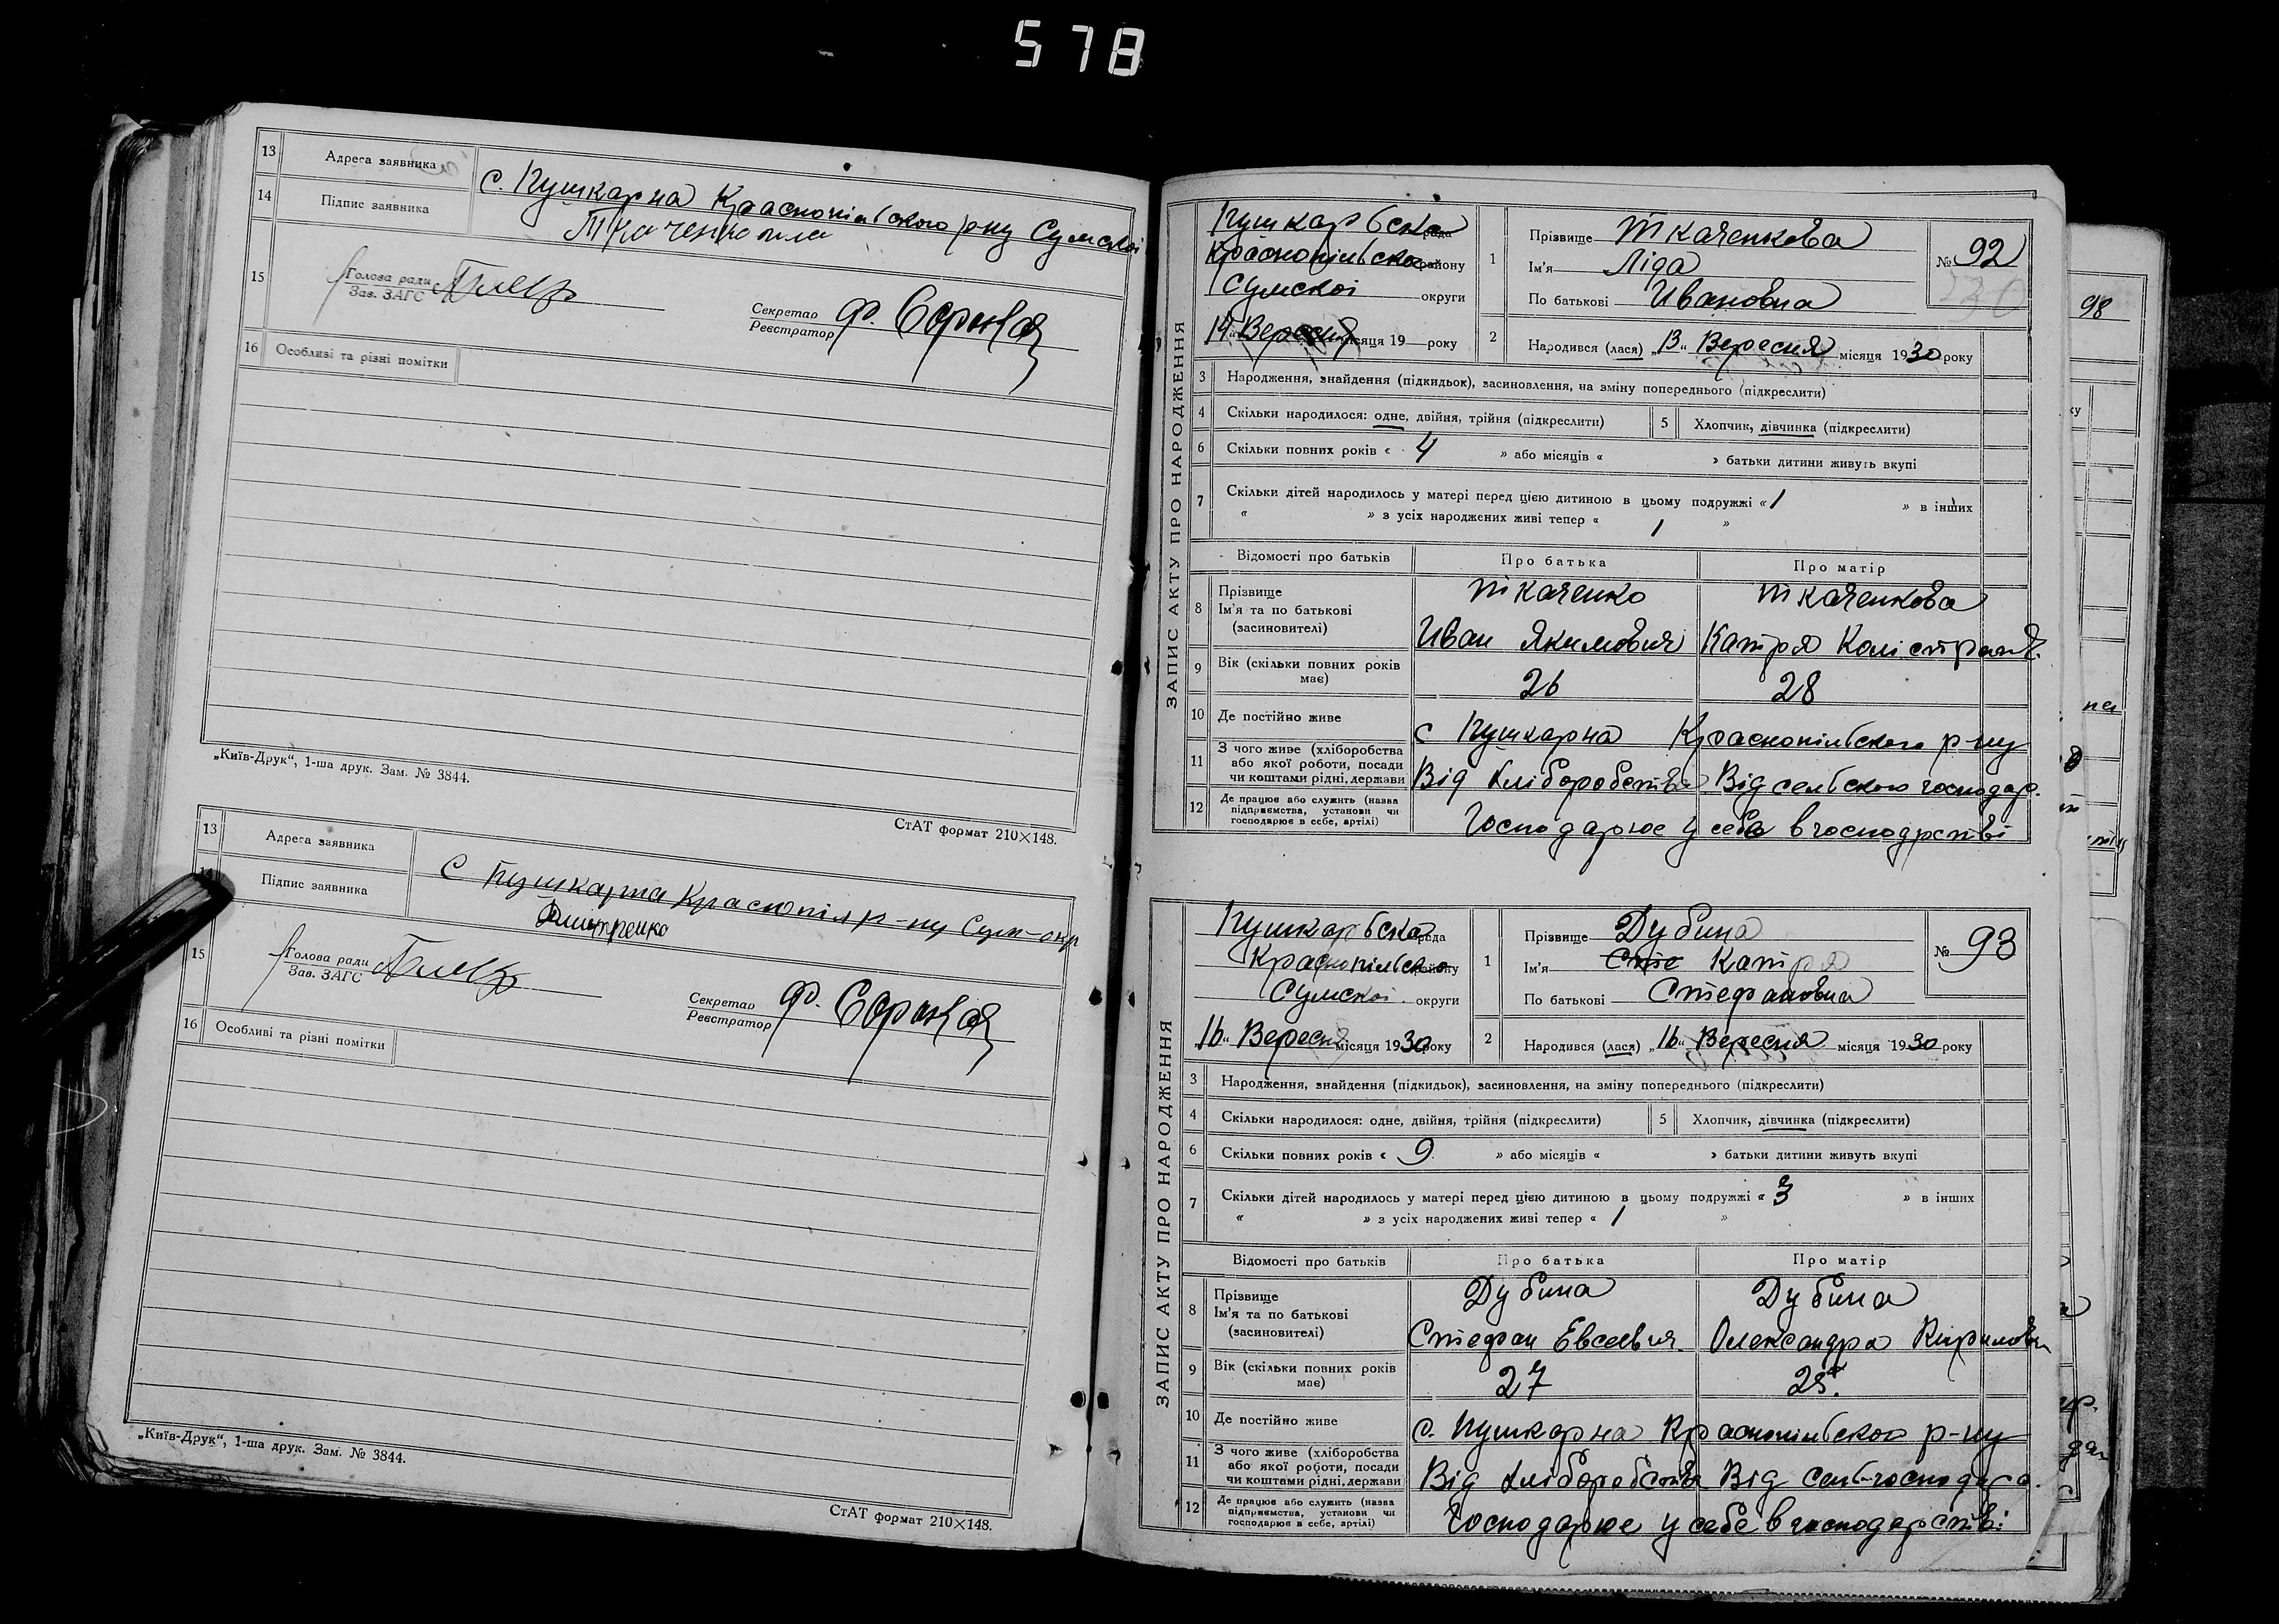 578
13 Адреса заявника с. Пушкарна Краснопільского р-ну Сумскої
14 Підпис заявника Ткаченко
15 Голова ради
Зав. ЗАГС
Секретар
Реєстратор Ф.
16 Особливі та різні помітки
„Київ-Друк“, 1-ша друк. Зам. № 3844.
СтАТ формат 210×148.
13 Адреса заявника с Пушкарна Краснопіл р-ну Сум-окр
14 Підпис заявника Дмитренко
15 Голова ради
Зав. ЗАГС
Секретар
Реєстратор Ф.
16 Особливі та різні помітки
„Київ-Друк“, 1-ша друк. Зам. № 3844.
СтАТ формат 210×148.
ЗАПИС АКТУ ПРО НАРОДЖЕННЯ
Пушкарьска рада
Краснопільско району
Сумскої округи
„14“ Вересня місяця 19 року
1 Прізвище Ткаченкова
Ім'я Ліда
По батькові Ивановна
№ 92
2 Народився (лася) „13“ Вересня місяця 1930 року
3 Народження, знайдення (підкидьок), засиновлення, на зміну попереднього (підкреслити)
4 Скільки народилося: одне, двійня, трійня (підкреслити) 5 Хлопчик, дівчинка (підкреслити)
6 Скільки повних років « 4 » або місяців « » батьки дитини живуть вкупі
7 Скільки дітей народилось у матері перед цією дитиною в цьому подружжі « 1 » в інших
« » з усіх народжених живі тепер « 1 »
Відомості про батьків Про батька Про матір
8 Прізвище Ткаченко Ткаченкова
Ім'я та по батькові
(засиновителі) Иван Якимович Катря Калістрат
9 Вік (скільки повних років має) 26 28
10 Де постійно живе с Пушкарна Краснопільского р-ну
11 З чого живе (хліборобства або якої роботи, посади чи коштами рідні, держави Від хліборобства Від сельского господар.
12 Де працює або служить (назва підприємства, установи чи господарює в себе, артілі) Господарює у себе в господрстві
98
ЗАПИС АКТУ ПРО НАРОДЖЕННЯ
Пушкарьска рада
Краснопільско району
Сумскої округи
„16“ Вересня місяця 1930 року
1 Прізвище Дубина
Ім'я Сте Катря
По батькові Стефановна
№ 93
2 Народився (лася) „16“ Вересня місяця 1930 року
3 Народження, знайдення (підкидьок), засиновлення, на зміну попереднього (підкреслити)
4 Скільки народилося: одне, двійня, трійня (підкреслити) 5 Хлопчик, дівчинка (підкреслити)
6 Скільки повних років « 9 » або місяців « » батьки дитини живуть вкупі
7 Скільки дітей народилось у матері перед цією дитиною в цьому подружжі « 3 » в інших
« » з усіх народжених живі тепер « 1 »
Відомості про батьків Про батька Про матір
8 Прізвище Дубина Дубина
Ім'я та по батькові
(засиновителі) Стефан Евсевич. Олександра Кирилов
9 Вік (скільки повних років має) 27 25.
10 Де постійно живе с. Пушкарна Краснопільског р-ну
11 З чого живе (хліборобства або якої роботи, посади чи коштами рідні, держави Від хліборобства Від сель-господарс.
12 Де працює або служить (назва підприємства, установи чи господарює в себе, артілі) Господарює у себе в господарстві